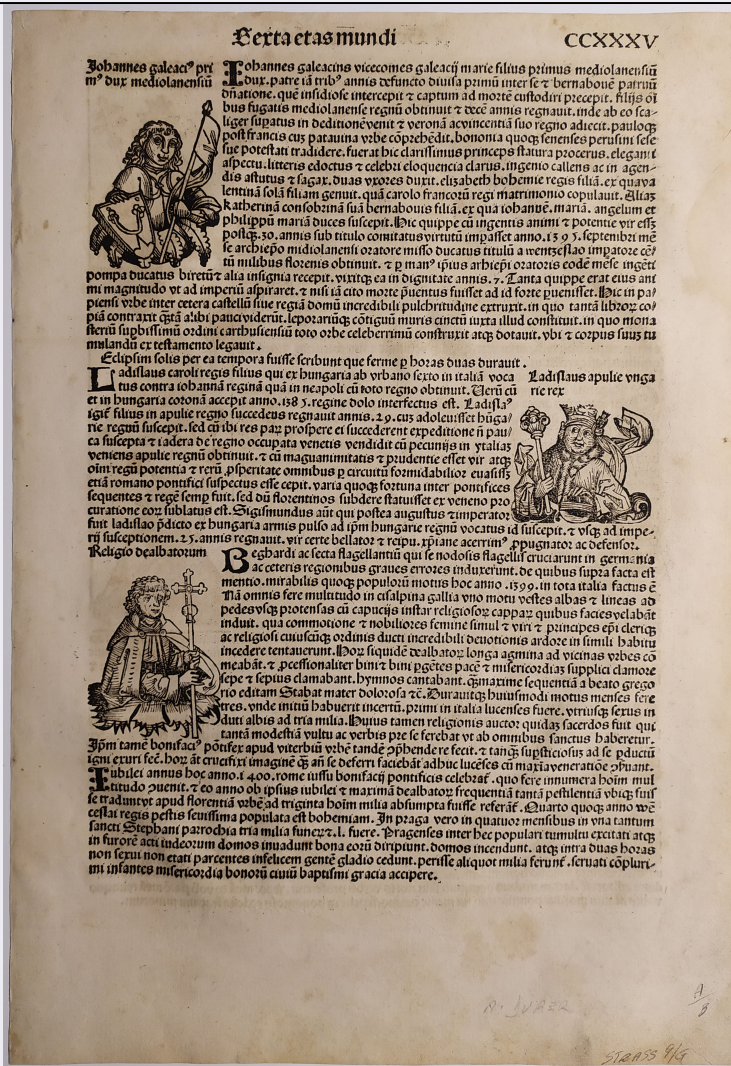 Sexta etas mundi
CCXXXV
Johannes galeaciꝰ pri
mꝰ dux mediolanensiū
Johannes galeacius vicecomes galeacij marie filius primus mediolanensiū
dux. patre iā tribꝰ annis defuncto diuisa primū inter se ⁊ bernabouē patruū
dn̄atione. quē insidiose intercepit ⁊ captum ad mortē custodiri precepit. filijs oī
bus fugatis mediolanense regnū obtinuit ⁊ decē annis regnauit. inde ab eo sca-
liger supatus in deditionē venit ⁊ veronā ac vincentiā suo regno adiecit. pauloqꝫ
post francis cuꝫ patauina vrbe cōprehēdit. bononia quoqꝫ senenses perusini sese
sue potestati tradidere. fuerat hic clarissimus princeps statura procerus. eleganti
aspectu. litteris edoctus ⁊ celebri eloquencia clarus. ingenio callens ac in agen-
dis astutus ⁊ sagax. duas vxores duxit. elizabeth bohemie regis filiā. ex qua va
lentinā solā filiam genuit. quā carolo francorū regi matrimonio copulauit. Aliaꝫ
katherinā consobrinā suā bernabouis filiā. ex qua iohannē. mariā. angelum et
philippū mariā duces suscepit. Hic quippe cū ingentis animi ⁊ potentie vir esꝫ
postqꝫ.30. annis sub titulo comitatus virtutū imꝑasset anno.1395. septembri mē
se archiepō midiolanensi oratore misso ducatus titulū a wentzeslao imꝑatore cē
tū milibus florenis obtinuit. ⁊ ꝑ manꝰ ipius arhiepī oratoris eodē mēse ingēti
pompa ducatus biretū ⁊ alia insignia recepit. vixitqꝫ ea in dignitate annis.7. Tanta quippe erat eius ani
mi magnitudo vt ad imperiū aspiraret. ⁊ nisi iā cito morte p̄uentus fuisset ad id forte ꝑuenisset. Hic in pa
piensi vrbe inter cetera castellū siue regiā domū incredibili pulchritudine extruxit. in quo tantā libroꝝ co
piā contraxit qꝫtā alibi pauci viderūt. leporariūqꝫ cōtiguū muris cinctū iuxta illud constituit. in quo mona
steriū suꝑbissimū ordini carthusiensiū toto orbe celeberrimū construxit atqꝫ dotauit. vbi ⁊ corpus suuꝫ tu
mulandū ex testamento legauit.
Eclipsim solis per ea tempora fuisse scribunt que ferme ꝑ horas duas durauit.
Ladislaus caroli regis filius qui ex hungaria ab vrbano sexto in italiā voca
tus contra iohannā reginā quā in neapoli cū toto regno obtinuit. Verū cū
et in hungaria coronā accepit anno.1385. regine dolo interfectus est. Ladislaꝰ
Ladislaus apulie vnga
rie rex
igit̄ filius in apulie regno succedeus regnauit annis.29. cuꝫ adoleuisset hūga
rie regnū suscepit. sed cū ibi res paꝝ prospere ei succederent expeditione n̄ pau
ca suscepta ⁊ iadera de regno occupata venetis vendidit cū pecunijs in ytaliaꝫ
veniens apulie regnū obtinuit. ⁊ cū magnanimitatis ⁊ prudentie esset vir atqꝫ
oīm regū potentia ⁊ rerū ꝓsperitate omnibus ꝑ circuitū formidabilior euasissꝫ
etiā romano pontifici suspectus esse cepit. varia quoqꝫ fortuna inter pontifices
sequentes ⁊ regē semꝑ fuit. sed dū florentinos subdere statuisset ex veneno pro
curatione eoꝝ sublatus est. Sigismundus aūt qui postea augustus ⁊ imperator
fuit ladislao p̄dicto ex hungaria armis pulso ad ip̄m hungarie regnū vocatus id suscepit. ⁊ vsqꝫ ad impe-
rij susceptionem.25. annis regnauit. vir certe bellator ⁊ reipu. xp̄iane acerrimꝰ ꝓpugnator ac defensor.
Religio dealbatorum
Beghardi ac secta flagellantiū qui se nodosis flagellis cruciarunt in germania
ac ceteris regionibus graues errores induxerunt. de quibus supra facta est
mentio. mirabilis quoqꝫ populorū motus hoc anno.1399. in tota italia factus ē
Nā omnis fere multitudo in cisalpina gallia vno motu vestes albas ⁊ lineas ad
pedes vsqꝫ protensas cū capucijs instar religiosoꝝ cappaꝝ quibus facies velabāt
induit. qua commotione ⁊ nobiliores femine simul ⁊ viri ⁊ principes ep̄i clericiqꝫ
ac religiosi cuiuscūqꝫ ordinis ducti incredibili deuotionis ardore in simili habitu
incedere tentauerunt. Hoꝝ siquidē dealbatoꝝ longa agmina ad vicinas vrbes cō
meabāt. ⁊ ꝓcessionaliter bini ⁊ bini ꝑgētes pacē ⁊ misericordiaꝫ supplici clamore
sepe ⁊ sepius clamabant. hymnos cantabant. qꝫmaxime sequentiā a beato grego
rio editam Stabat mater dolorosa ⁊ē. Durauitqꝫ huiusmodi motus menses fere
tres. vnde initiū habuerit incertū. primi in italia lucenses fuere. vtriusqꝫ sexus in
duti albis ad tria milia. Huius tamen religionis auctor quidaꝫ sacerdos fuit qui
tantā modestiā vultu ac verbis pre se ferebat vt ab omnibus sanctus haberetur.
Ip̄m tamē bonifaciꝰ pōtifex apud viterbiū vrbē tandē ꝓhendere fecit. ⁊ tanqꝫ supsticiosuꝫ ad se ꝑductū
igni exuri fec̄. hoꝝ āt crucifixi imaginē qꝫ an̄ se deferri faciebāt adhuc lucēses cū maxīa veneratiōe ꝯẜuant.
Iubilei annus hoc anno.1400. rome iussu bonifacij pontificis celebrat̄. quo fere innumera hoīm mul
titudo ꝯuenit. ⁊ eo anno ob ipsius iubilei ⁊ maximā dealbatoꝝ frequentiā tanta pestilentiā vbiqꝫ fuis
se tradunt vt apud florentiā vrbē ad triginta hoīm milia absumpta fuisse referāt̄. Quarto quoqꝫ anno wē
ceslai regis pestis seuissima populata est bohemiam. In praga vero in quatuor mensibus in vna tantum
sancti Stephani parrochia tria milia funeꝝ ⁊.l. fuere. Pragenses inter hec populari tumultu excitati atqꝫ
in furorē acti iudeorum domos inuadunt bona eorū diripiunt. domos incendunt. atqꝫ intra duas horas
non sexui non etati parcentes infelicem gentē gladio cedunt. perisse aliquot milia ferunt̄. seruati cōpluri-
mi infantes misericordia bonorū ciuiū baptismi gracia accipere.
A. DURER
A/B
STRASS 9/G